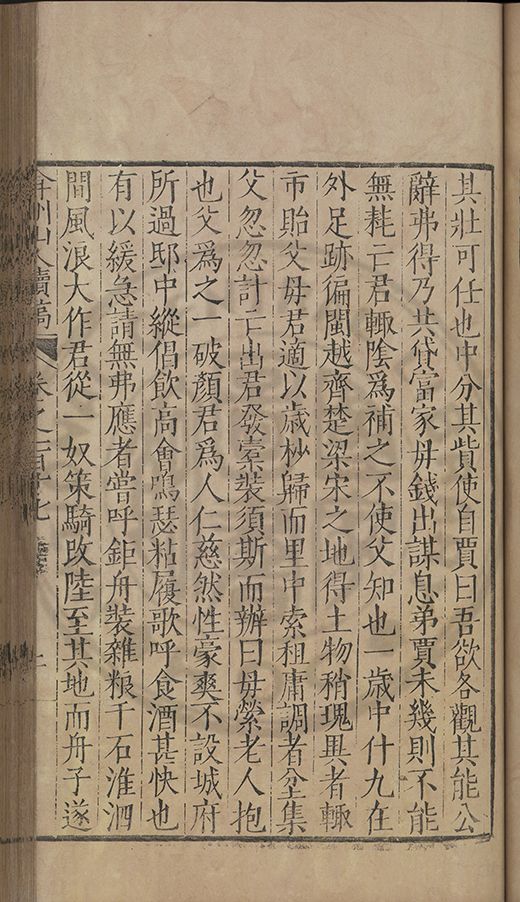 其壯可任也中分其貲使自賈曰吾欲各觀其能公
辭弗得乃其貸富家毋錢出謀息弟賈未幾則不能
無耗亡君輙陰爲補之不使父知也一歳中什九在
外足跡徧閩越齊楚梁宋之地得土物稍瑰異者輙
市貽父毋君適以歳杪歸而里中索租庸調者坌集
父忽忽計亡出君發橐裝須斯而辦曰毋縈老人抱
也父爲之一破顏君爲人仁慈然性豪爽不設城府
所過邸中縱倡飲高會鳴瑟粘屨歌呼食酒甚快也
有以緩急請無弗應者嘗呼鉅舟裝雜粮千石淮泗
間風浪大作君從一奴策騎攺陸至其地而舟子遂
弇州山人續稿 卷之一百 上